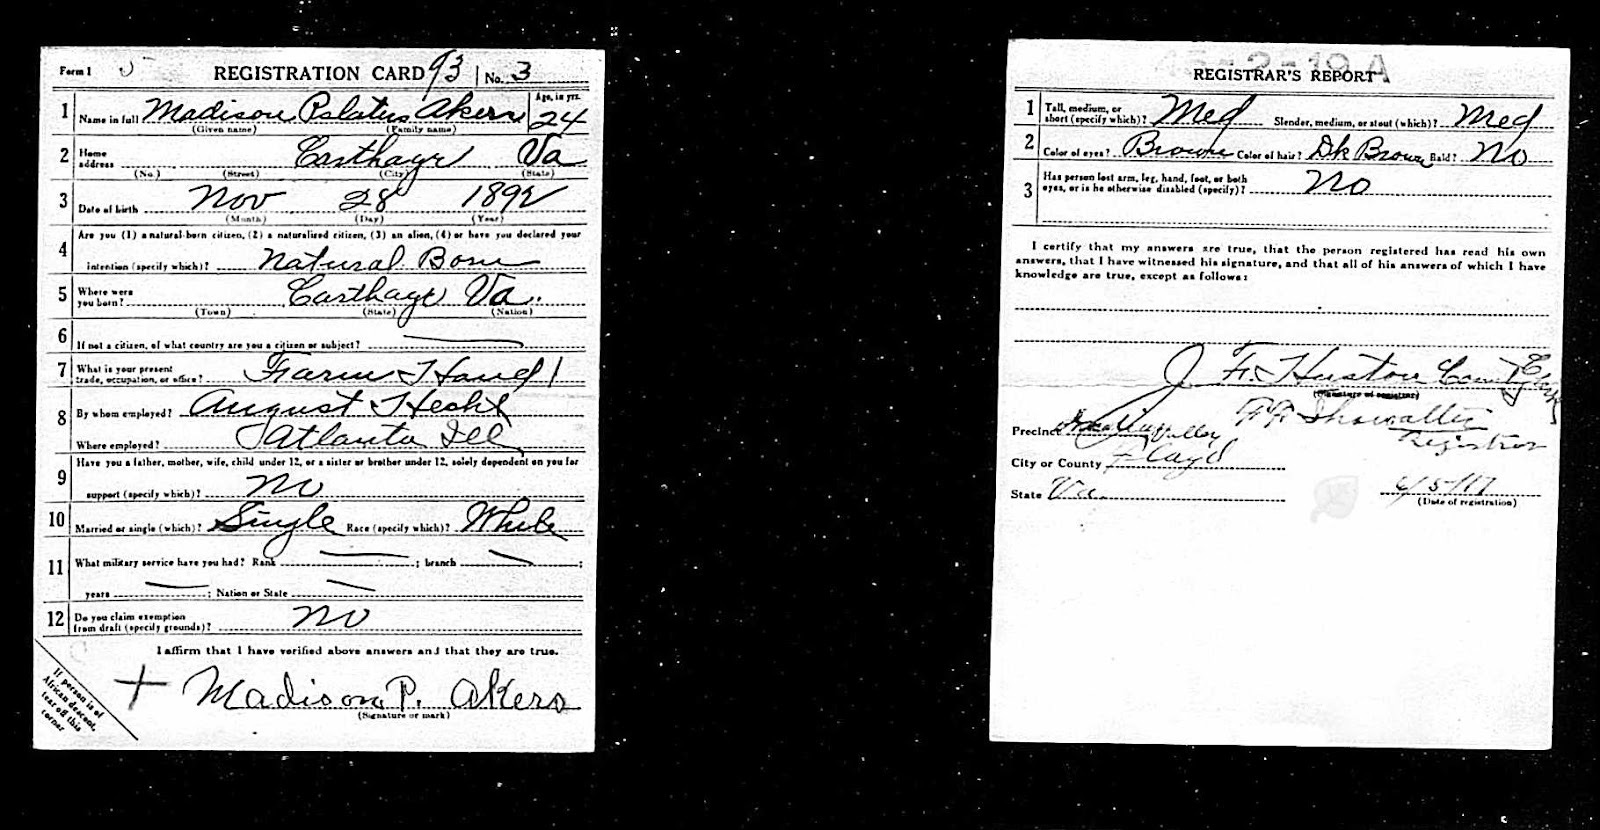 Form 1
REGISTRATION CARD 93 No. 3
1 Name in full Madison Akers Age, in yrs. 24
(Given name) (Family name)
2 Home address Carthage Va
(No.) (Street) (City) (State)
3 Date of birth Nov 28 1892
(Month) (Day) (Year)
4 Are you (1) a natural-born citizen, (2) a naturalized citizen, (3) an alien, (4) or have you declared your
intention (specify which)? Natural Born
5 Where were you born? Carthage Va.
(Town) (State) (Nation)
6 If not a citizen, of what country are you a citizen or subject?
7 What is your present trade, occupation, or office? Farm Hand
8 By whom employed? August Hecht
Where employed? Atlanta Ill
9 Have you a father, mother, wife, child under 12, or a sister or brother under 12, solely dependent on you for
support (specify which)? No
10 Married or single (which)? Single Race (specify which)? White
11 What military service have you had? Rank ; branch ;
years ; Nation or State
12 Do you claim exemption from draft (specify grounds)? No
I affirm that I have verified above answers and that they are true.
+ Madison P. Akers
(Signature or mark)
If person is of
African descent,
tear off this
corner
REGISTRAR'S REPORT
1 Tall, medium, or short (specify which)? Med Slender, medium, or stout (which)? Med
2 Color of eyes? Brown Color of hair? Dk Brown Bald? No
3 Has person lost arm, leg, hand, foot, or both
eyes, or is he otherwise disabled (specify)? No
I certify that my answers are true, that the person registered has read his own
answers, that I have witnessed his signature, and that all of his answers of which I have
knowledge are true, except as follows:
J. F. Huston County Clerk
(Signature of registrar)
Precinct Showalter
Registrar
City or County Floyd
State Va.
6/5/17
(Date of registration)